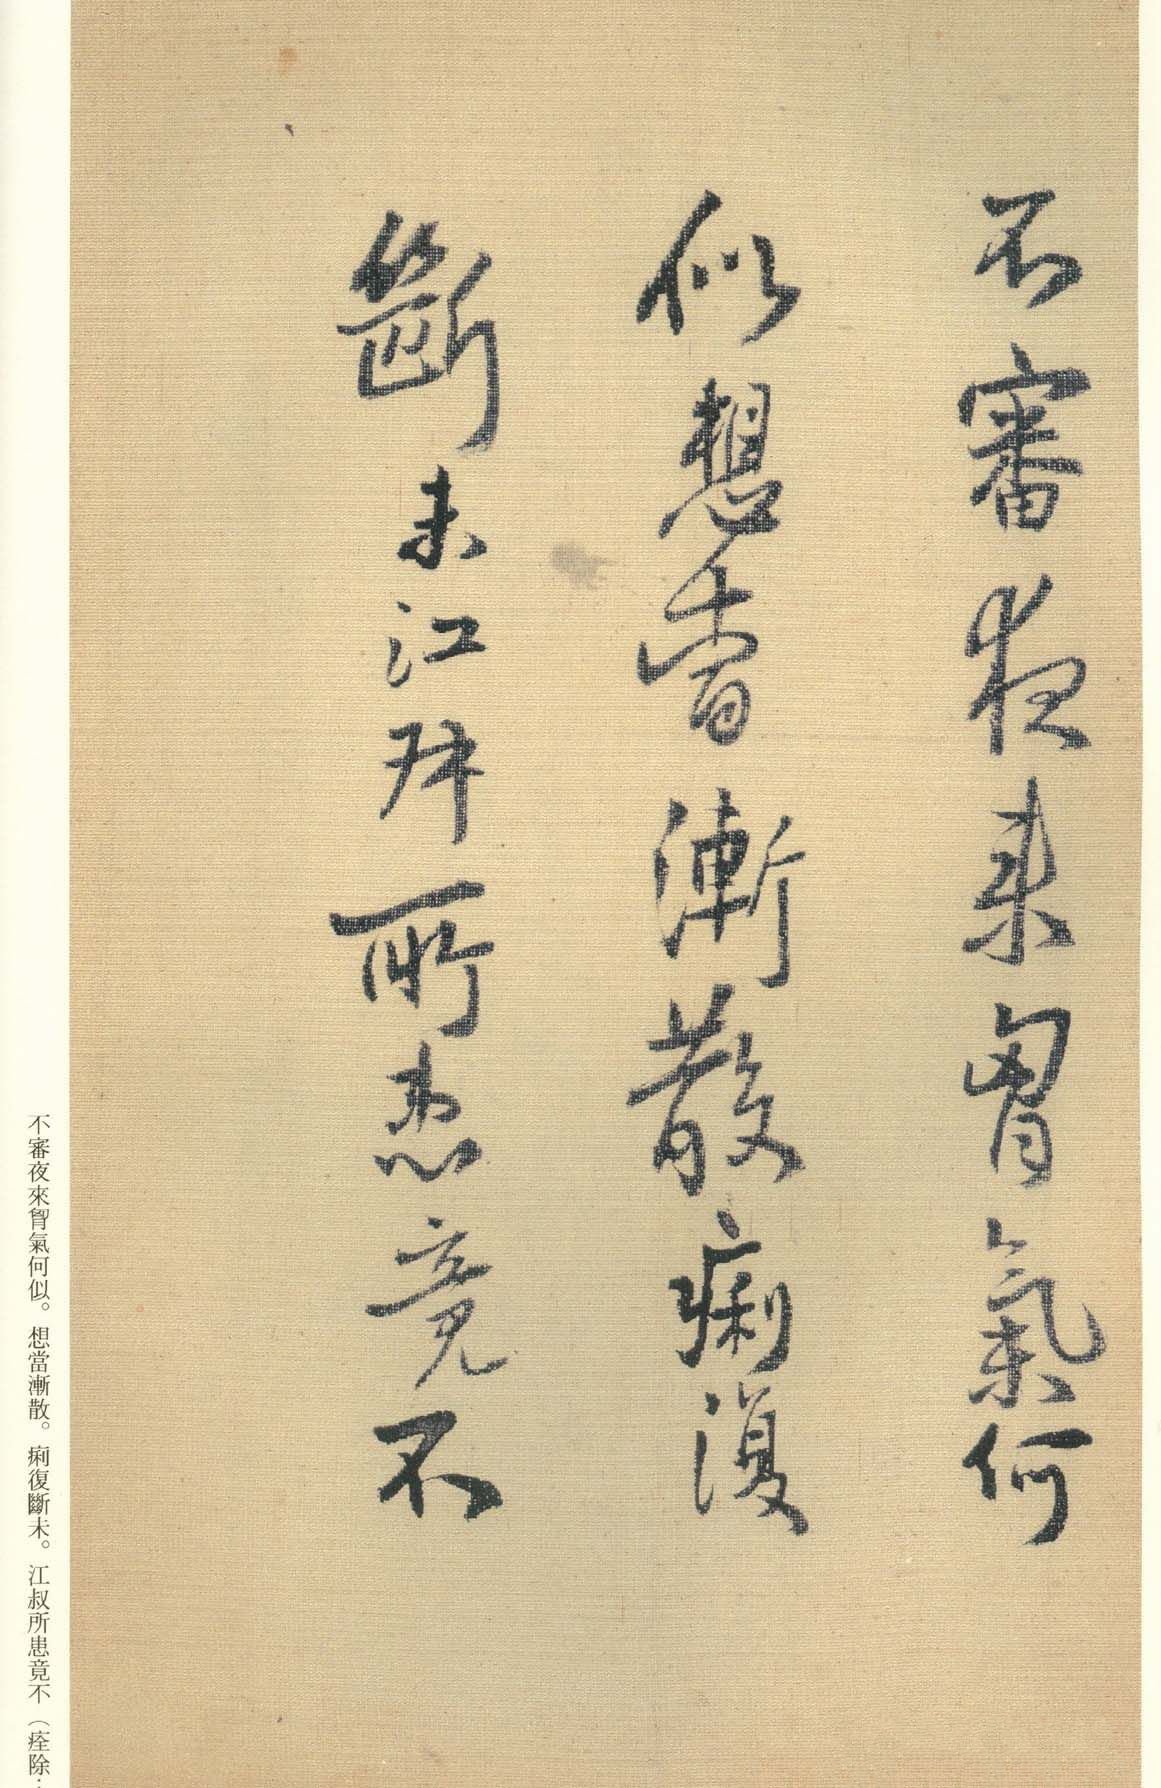 不審夜來胷氣何
似想當漸散痢復
斷未江叔所患竟不
不審夜來胷氣何似。想當漸散。痢復斷未。江叔所患竟不（痊除…